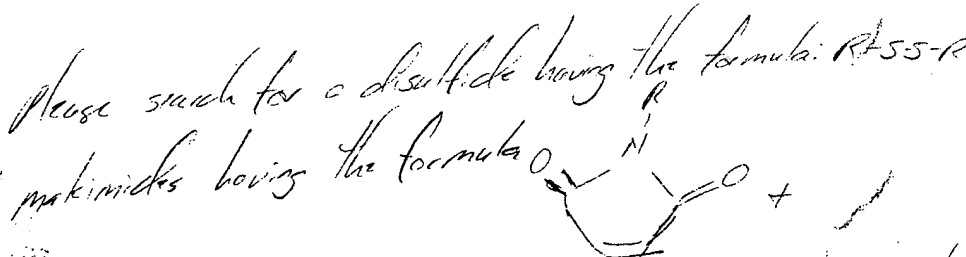 please search for a disulfide having the formula: R-SS-R
R
N
maleimides having the formula O O +